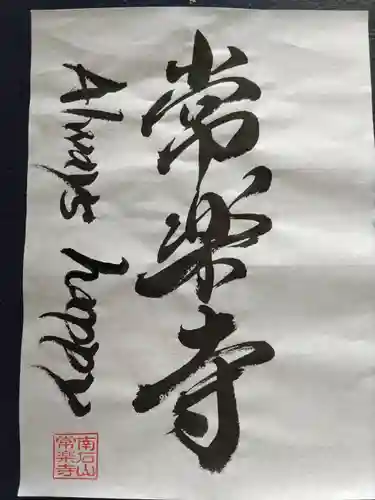 常楽寺
Always happy
南石山
常楽寺